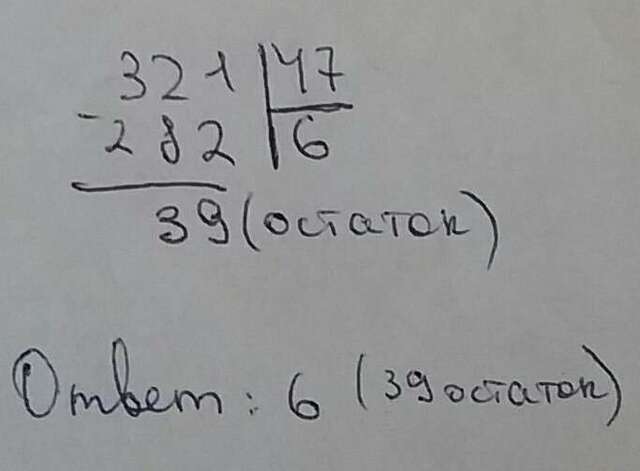 321 | 47
- 282 | 6
39 (остаток)
Ответ: 6 (39 остаток)